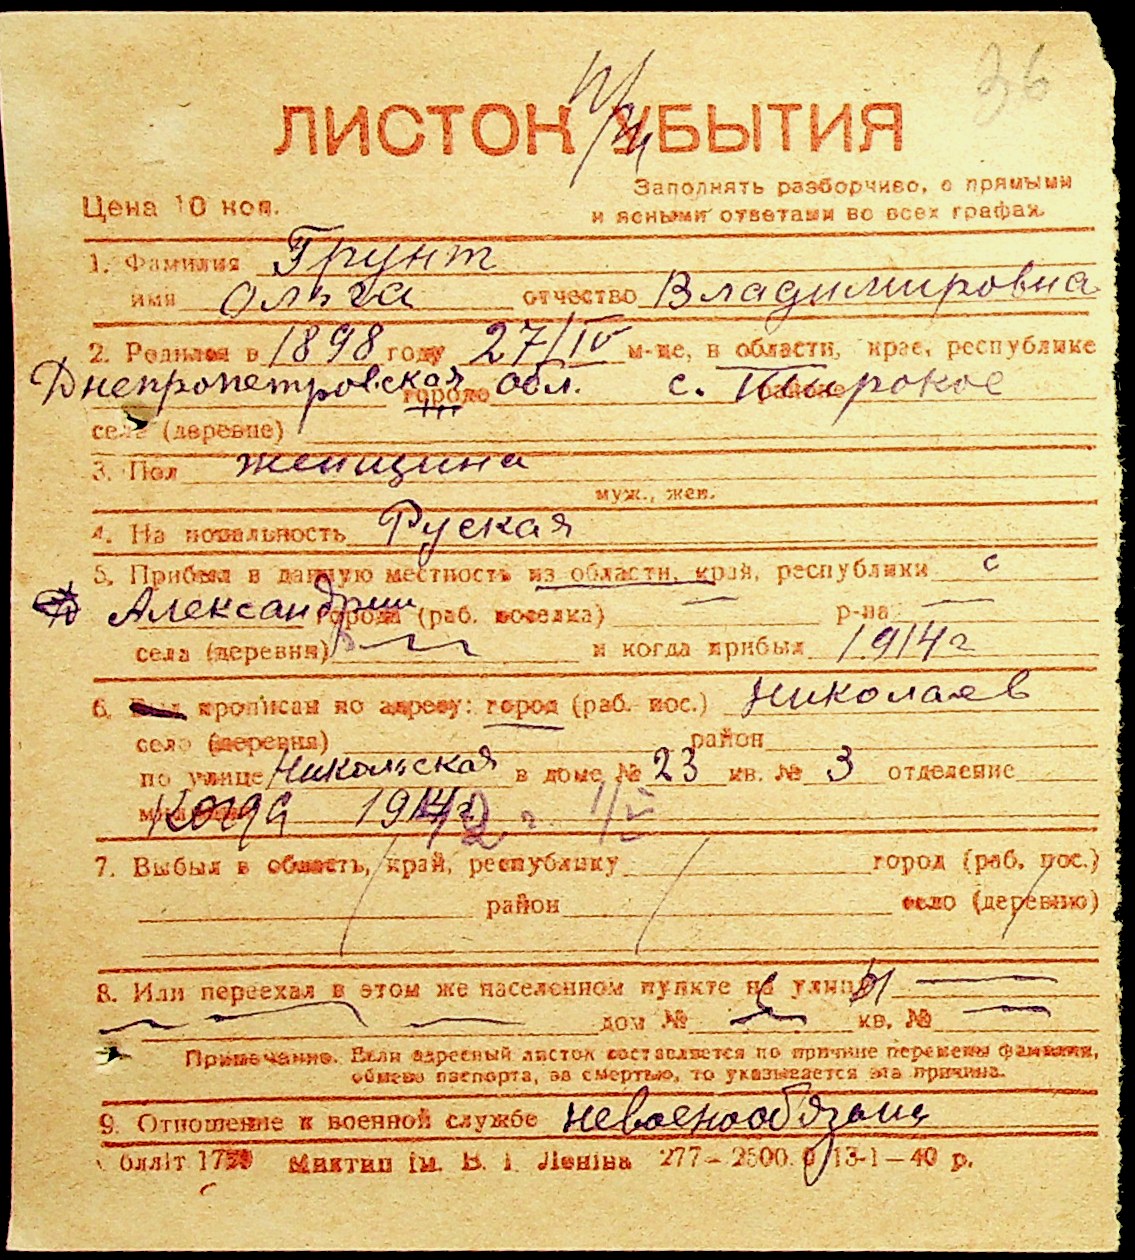 36
ЛИСТОК УБЫТИЯ
Цена 10 коп.
Заполнять разборчиво, с прямыми
и ясными ответами во всех графах.
1. Фамилия Грунт
имя Ольга отчество Владимировна
2. Родился в 1898 году 27/IV м-це, в области, крае, республике
Днепропетровская городе обл. с. Широкое
село (деревне)
3. Пол женщина
муж., жен.
4. На нональность Руская
5. Прибыл в данную местность из области, край, республики с
Александрии города (раб. поселка) р-на
села (деревни) и когда прибыл 1914г
6. Был прописан по адресу: город (раб. пос.) Николаев
село (деревня) район
по улице Никольская в доме № 23 кв. № 3 отделение
Когда
7. Выбыл в область, край, республику город (раб. пос.)
район село (деревню)
8. Или переехал в этом же населенном пункте на улицу
дом № кв. №
Примечание. Если адресный листок составляется по причине перемены фамилии,
обмена паспорта, за смертью, то указывается эта причина.
9. Отношение к военной службе невоенообязана
блліт Миктип ім. В. І. Леніна 277–2500. 13-1–40 р.